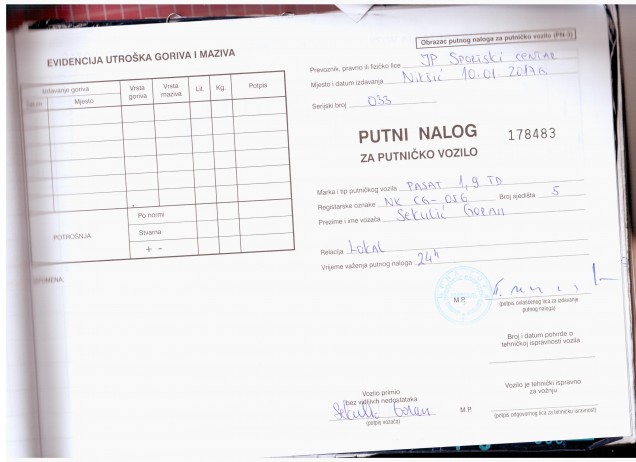 EVIDENCIJA UTROŠKA GORIVA I MAZIVA
Izdavanje goriva
Datum
Mjesto
Vrsta goriva
Vrsta maziva
Lit.
Kg.
Potpis
POTROŠNJA
Po normi
Stvarna
+ -
Obrazac putnog naloga za putničko vozilo (PN-3)
Prevoznik, pravno ili fizičko lice JP Sportski centar
Mjesto i datum izdavanja Nikšić 10.01.2017g
Serijski broj 033
PUTNI NALOG 178483
ZA PUTNIČKO VOZILO
Marka i tip putničkog vozila PASAT 1,9 TD
Registarske oznake NK CG-056 Broj sjedišta 5
Prezime i ime vozača Sekulić Goran
Relacija Lokal
Vrijeme važenja putnog naloga 24h
M.P.
(potpis ovlašćenog lica za izdavanje
putnog naloga)
Broj i datum potvrde o
tehničkoj ispravnosti vozila
Vozilo primio
bez vidljivih nedostataka
Sekulić Goran
(potpis vozača)
Vozilo je tehnički ispravno
za vožnju
M.P.
(potpis odgovornog lica za tehničku ispravnost)